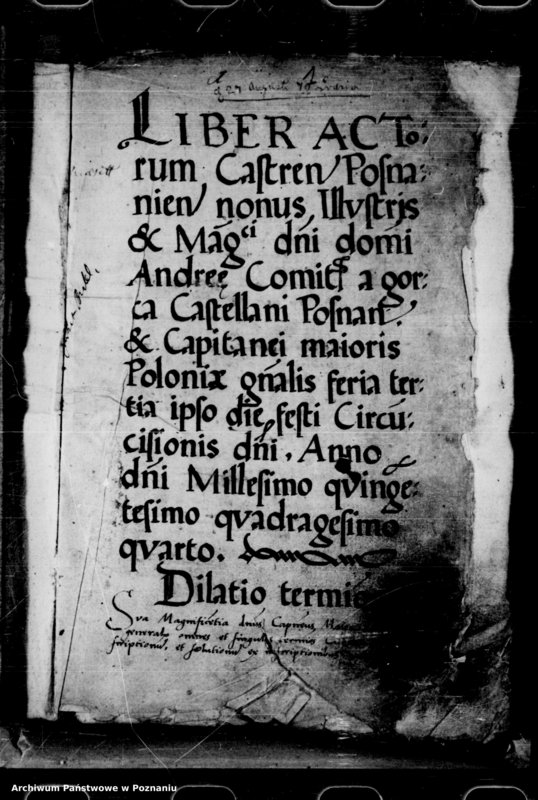 27 Augusti
LIBER ACTo:
rum Castren Posna:
nien nonus, Illvstris
& Mãgci dñi domi
Andreę Comitis a gor:
ca Castellani Posnan.
& Capitanei maioris
Poloniæ gñalis feria ter:
tia ipso die festi Circũ:
cisionis dñi, Anno
dñi Millesimo qvinge:
tesimo qvadragesimo
qvarto.
Dilatio termi
Sva Magnificentia dnus Capneus
generalis omnes et singulos terminos
scriptionum, et solutionum ex inscriptionibus
Archiwum Państwowe w Poznaniu